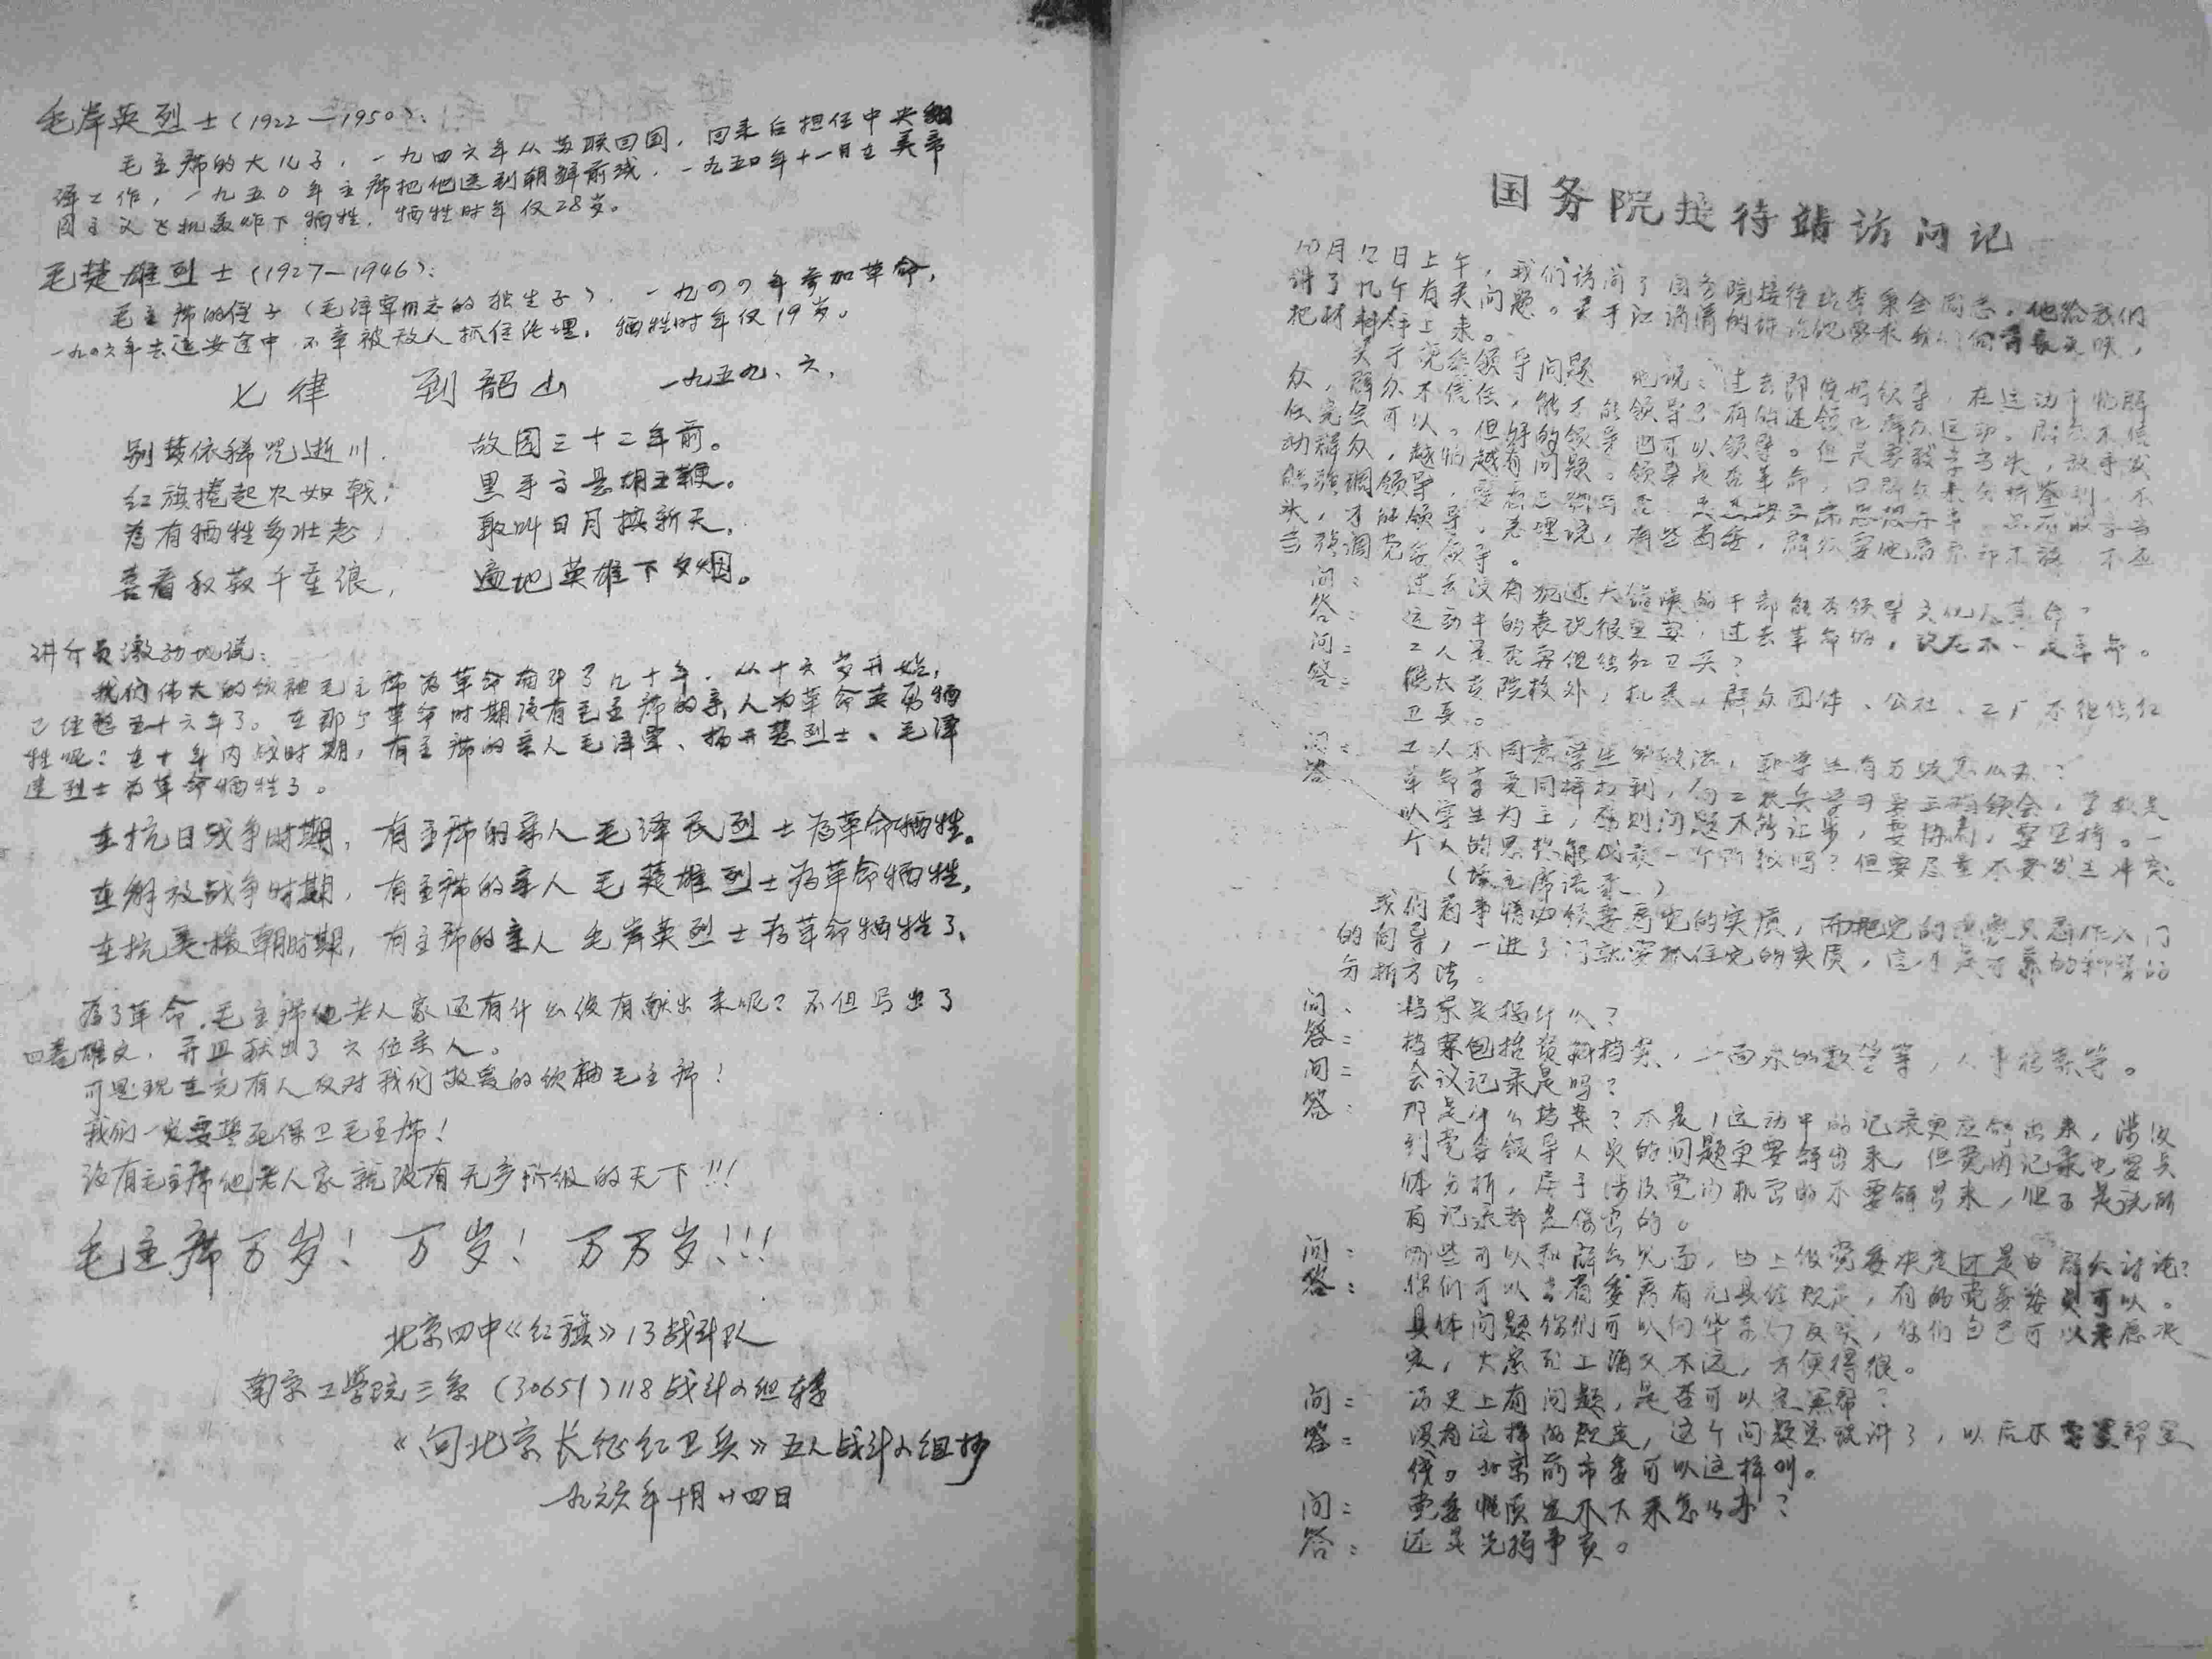 毛岸英烈士(1922—1950):
毛主席的大儿子,一九四六年从苏联回国,回来后担任中央翻
译工作,一九五〇年主席把他送到朝鲜前线,一九五〇年十一月在美帝
国主义飞机轰炸下牺牲,牺牲时年仅28岁。
毛楚雄烈士(1927—1946):
毛主席的侄子(毛泽覃同志的独生子),一九四四年参加革命,
一九四六年去延安途中不幸被敌人抓住活埋,牺牲时年仅19岁。
七律 到韶山 一九五九、六,
别梦依稀咒逝川, 故园三十二年前。
红旗捲起农奴戟, 黑手高悬胡主鞭。
为有牺牲多壮志, 敢叫日月换新天,
喜看菽菽千重浪, 遍地英雄下夕烟。
讲介员激动地说:
我们伟大的领袖毛主席为革命奋斗了几十年,从十六岁开始,
已经整五十六年了。在那个革命时期没有毛主席的亲人为革命英勇牺
牲呢?在十年内战时期,有主席的亲人毛泽覃、杨开慧烈士、毛泽
建烈士为革命牺牲了。
在抗日战争时期,有主席的亲人毛泽民烈士为革命牺牲。
在解放战争时期,有主席的亲人毛楚雄烈士为革命牺牲,
在抗美援朝时期,有主席的亲人毛岸英烈士为革命牺牲了、
为了革命,毛主席他老人家还有什么没有献出来呢?不但写出了
四卷雄文,并且献出了六位亲人。
可恶现在竟有人反对我们敬爱的领袖毛主席!
我们一定要誓死保卫毛主席!
没有毛主席他老人家就没有无产阶级的天下!!!
毛主席万岁! 万岁! 万万岁!!!
北京四中《红旗》13战斗队
南京工学院三系(30651)118战斗小组转
《向北京长征红卫兵》五人战斗小组抄
一九六六年十月廿四日
国务院接待站访问记
10月12日上午,我们访问了国务院接待站李秉全同志。他给我们
讲了几个有关问题。关于江渭清的
把材料
关于党委领导问题 他说:过去即使好领导,在运动中怕群
众,群众不信任,能不能领导?
但好的领导也可以领导。但是要
动群众,越怕越有问题。领导是否革命,由群众来分析鉴别,不
能强调领导,
头,才能领导,
当强调党委领导。
问: 过去没有犯过大错误的干部能否领导文化大革命?
答: 运动中的表现很重要,过去革命的,现在不一定革命。
问: 工人是否要组织红卫兵?
答: 除大专院校外,机关,群众团体、公社、工厂不组织红
卫兵。
问: 工人不同意学生的做法,和学生有分歧怎么办?
答: 革命享受同样权利,向工农兵学习要正确领会,学校是
以学生为主,原则问题不能让步,要协商,要坚持。一
个人的思想能代表一个阶级吗?但要尽量不要发生冲突。
(读主席语录)
我们看事情必须要看它的实质,而把它的现象只看作入门
的向导,一进了门就要抓住它的实质,这才是可靠的科学的
分析方法。
问、 档案是指什么?
答: 档案包括资料档案,人事档案等。
问: 会议记录是吗?
答: 那是什么档案?不是,运动中的记录更应解出来,涉及
到党委领导人员的问题更要解出来,但党内记录也要具
体分析,属于涉及党内机密的不要解出来,但不是说所
有记录都是保密的。
问: 哪些可以和群众见面,由上级党委决定还是由群众讨论?
答: 你们可以去省委看有无具体规定,有的党委委员可以。
具体问题你们可以向华东局反映,你们自己可以考虑决
定,大家到上海又不远,方便得很。
问: 历史上有问题,是否可以定黑帮?
答: 没有这样的规定,这个问题总理讲了,以后不要黑帮黑
线。北京前市委可以这样叫。
问: 党委性质定不下来怎么办?
答: 还是先搞事实。